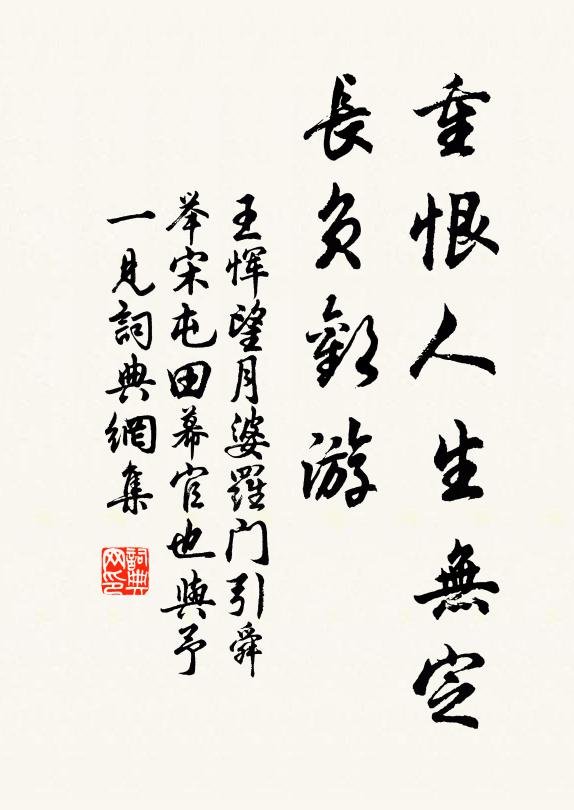 重恨人生無定
長負歡游
王惲望月婆羅門引舜
举宋屯田幕官也與予
一見詞典網集
詞典网印